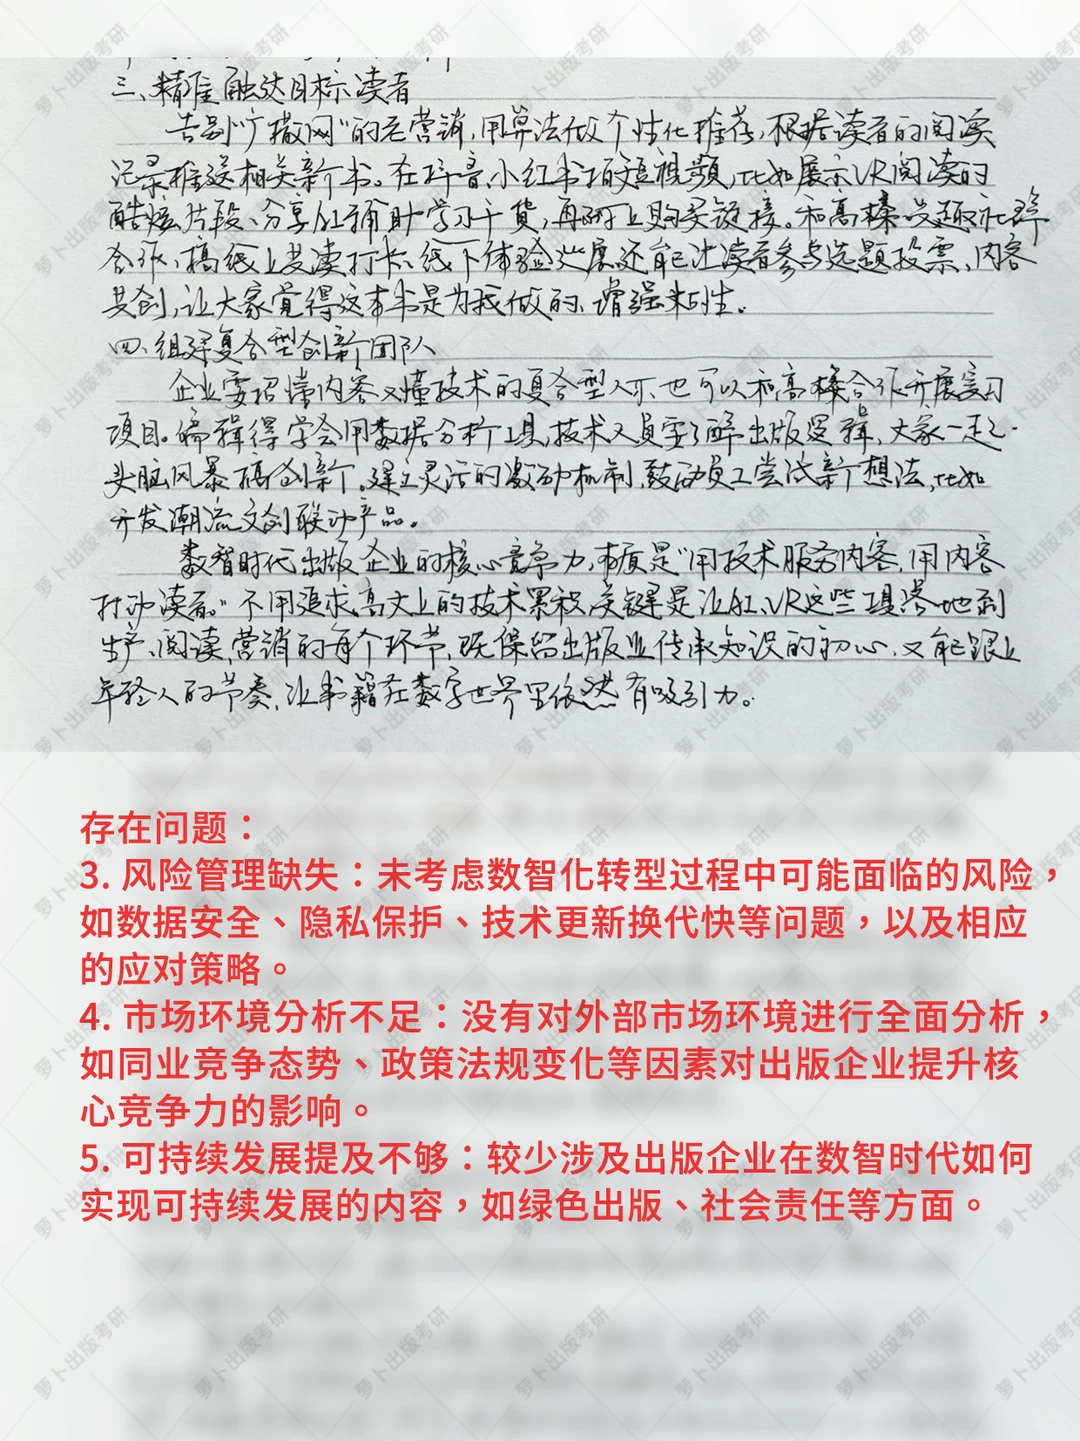 三、精准触达目标读者
告别“广撒网”的老营销,用算法做个性化推荐,根据读者的阅读
记录推送相关新书。在抖音、小红书拍短视频,比如展示VR阅读的
酷炫片段、分享AI辅助学习干货,再附上购买链接。和高校、兴趣社群
合作,搞线上共读打卡、线下体验处展还能让读者参与选题投票、内容
共创,让大家觉得这本书是为我做的、增强粘性。
四、组建复合型创新团队
企业要招懂内容又懂技术的复合型人才,也可以和高校合作开展实习
项目。编辑得学会用数据分析工具,技术人员要了解出版逻辑,大家一起
头脑风暴搞创新。建立灵活的激励机制,鼓励员工尝试新想法,比如
开发潮流文创联动产品。
数智时代出版企业的核心竞争力,本质是“用技术服务内容,用内容
打动读者。”不用追求高大上的技术累积,关键是让AI、VR这些工具落地到
生产、阅读、营销的每个环节,既保留出版业传承知识的初心,又能跟上
年轻人的节奏,让书籍在数字世界里依然有吸引力。
存在问题：
3. 风险管理缺失：未考虑数智化转型过程中可能面临的风险，
如数据安全、隐私保护、技术更新换代快等问题，以及相应
的应对策略。
4. 市场环境分析不足：没有对外部市场环境进行全面分析，
如同业竞争态势、政策法规变化等因素对出版企业提升核
心竞争力的影响。
5. 可持续发展提及不够：较少涉及出版企业在数智时代如何
实现可持续发展的内容，如绿色出版、社会责任等方面。
萝卜出版考研